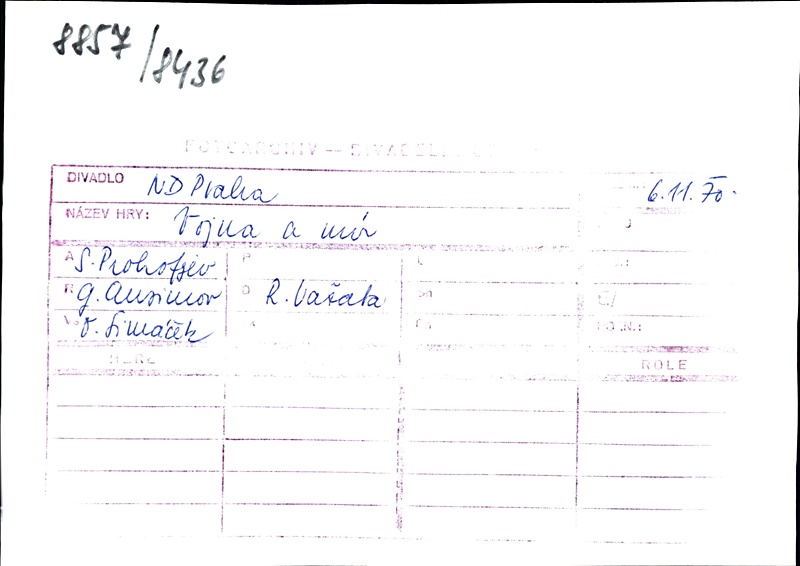 8857/8436
FOTOARCHIV — DIVADELNÍ
DIVADLO ND Praha 6.11.70.
NÁZEV HRY: Vojna a mír
A S. Prokofjev P
R G. Ansimov O R. Vašata
V. Šimáček
HERZ
ROLE